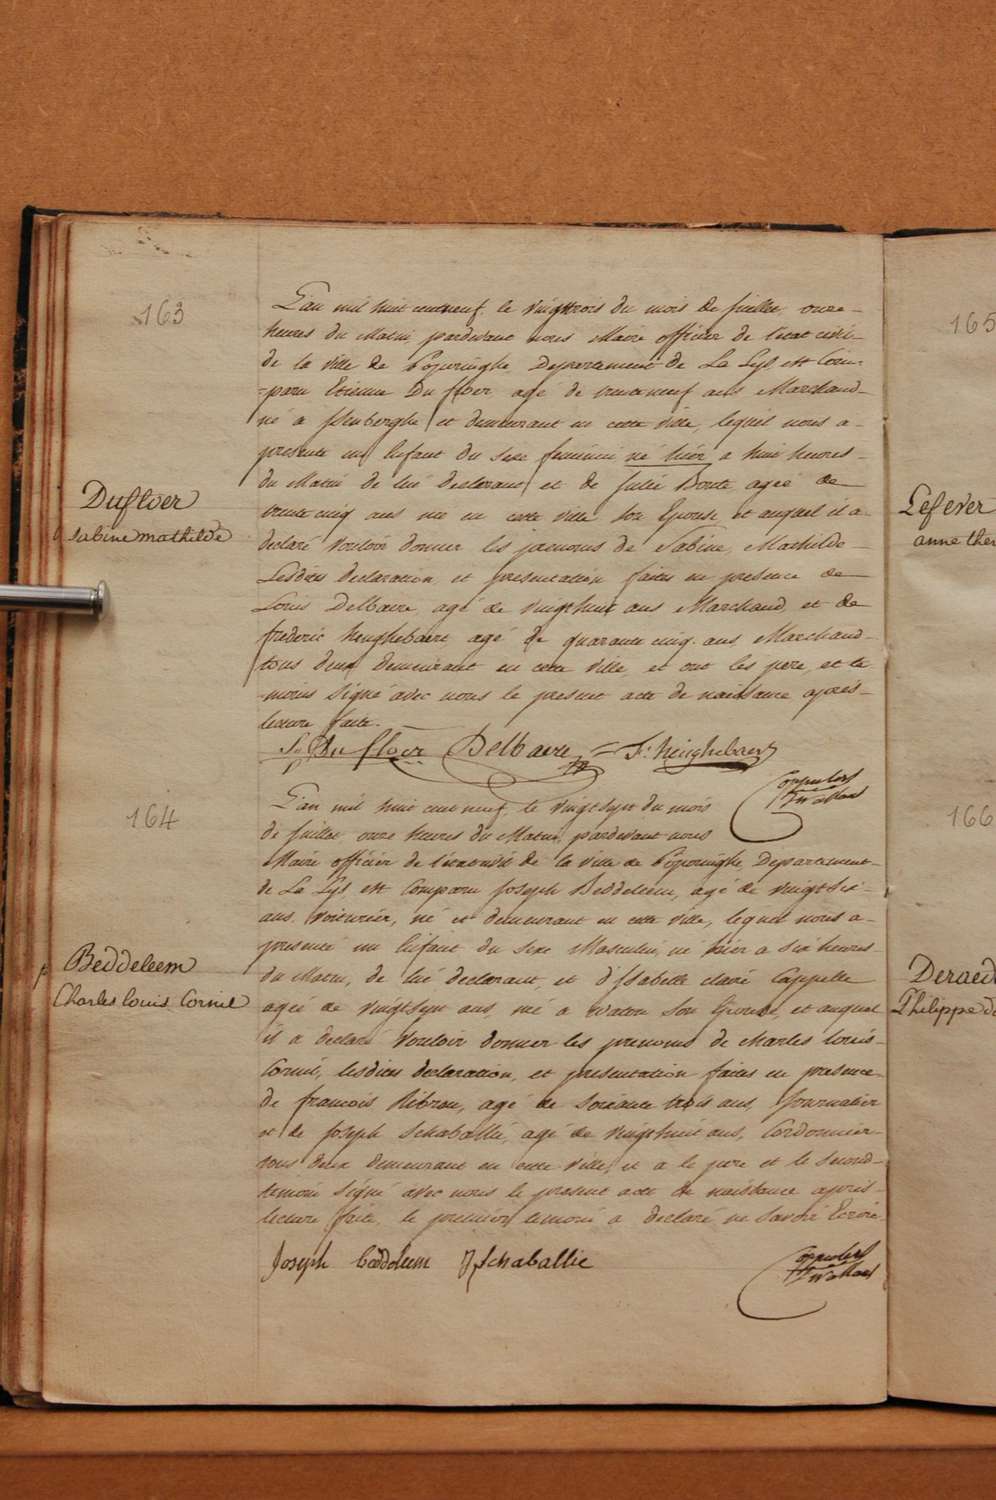 163
L'an mil huit cent neuf, le vingttrois du mois de juillet, onze
heures du Matin pardevant nous Maire officier de l'etat civil
de la ville de Poperinghe Departement de La Lys est Com-
=paru Etienne Dufloer, agé de trente neuf ans Marchand
né a et demeurant en cette ville, lequel nous a
presenté un Enfant du sexe feminin né hier a huit heures
du Matin de lui declarant et de Julie Bonte agée de
trente cinq ans née en cette ville son Epouse, et auquel il a
declaré vouloir donner les prenoms de Sabine, Mathilde
Lesdites declaration, et presentation faites en presence de
Louis Delbaere, agé de vingthuit ans Marchand, et de
frederic heughebaert agé de quarante cinq ans, Marchand
tous deux demeurant en cette ville, et ont les pere, et te-
-moins signé avec nous le present acte de naissance après
lecture faite.
Dufloer
Sabine mathilde
Du floer Delbaere F: heughebaert
164
L'an mil huit cent neuf, le vingtsept du mois
de juillet, onze heures du Matin, pardevant nous
Maire officier de l'etat civil de la ville de Poperinghe Departement
de La Lys est comparu Joseph Beddeleem, agé de vingtsix
ans, voiturier, né et demeurant en cette ville, lequel nous a
presenté un Enfant du sexe Masculin, né hier a six heures
du Matin, de lui declarant, et d'Isabelle claire Cappelle
agée de vingtsept ans, née a watou son Epouse, et auquel
il a declaré vouloir donner les prenoms de Charles louis
Cornil, lesdites declaration, et presentation faites en presence
de francois Ribrou, agé de soixante trois ans, Journalier
et de Joseph Schaballié, agé de vingthuit ans, Cordonnier
tous deux demeurant en cette ville, et a le pere et le second
temoin signé avec nous le present acte de naissance après
lecture faite, le premier temoin a declaré ne savoir Ecrire
Beddeleem
Charles louis Cornil
Joseph beddeleem J Schaballie
165
Lefever
anne ther
166
Deraed
Philippe de